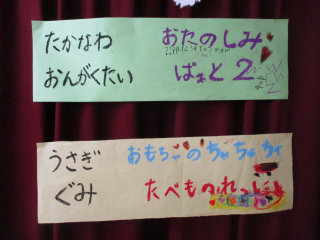 たかなわ
おんがくたい
おたのしみ
ぱぁと2
うさぎ
ぐみ
おもちゃのちゃちゃちゃ
たべものれっしゃ